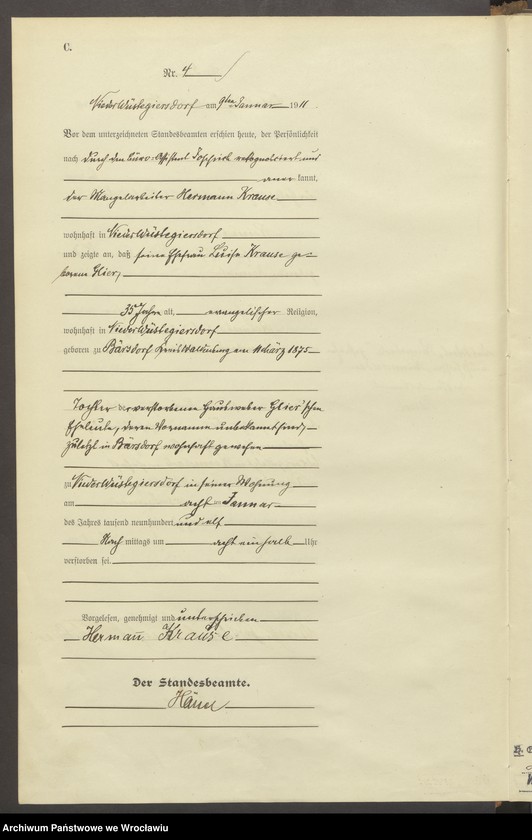 C.
Nr. 4
Nieder Wüstegiersdorf am 9ten Januar 1911
Vor dem unterzeichneten Standesbeamten erschien heute, der Persönlichkeit
nach durch den Büro-Assistent rekognosziert und
anerkannt,
der Mangelarbeiter Hermann Krause
wohnhaft in Nieder Wüstegiersdorf
und zeigte an, daß seine Ehefrau Luise Krause ge-
borene Glier,
35 Jahre alt, evangelischer Religion,
wohnhaft in Nieder Wüstegiersdorf
geboren zu Bärsdorf Kreis Waldenburg am März 1875
Tochter der verstorbenen Hausweber Glier'schen
Eheleute, deren Vornamen unbekannt sind,
zuletzt in Bärsdorf wohnhaft gewesen
zu Nieder Wüstegiersdorf in seiner Wohnung
am acht Januar
des Jahres tausend neunhundert und elf
Nach mittags um acht ein halb Uhr
verstorben sei.
Vorgelesen, genehmigt und unterschrieben
Hermann Krause
Der Standesbeamte.
Archiwum Państwowe we Wrocławiu